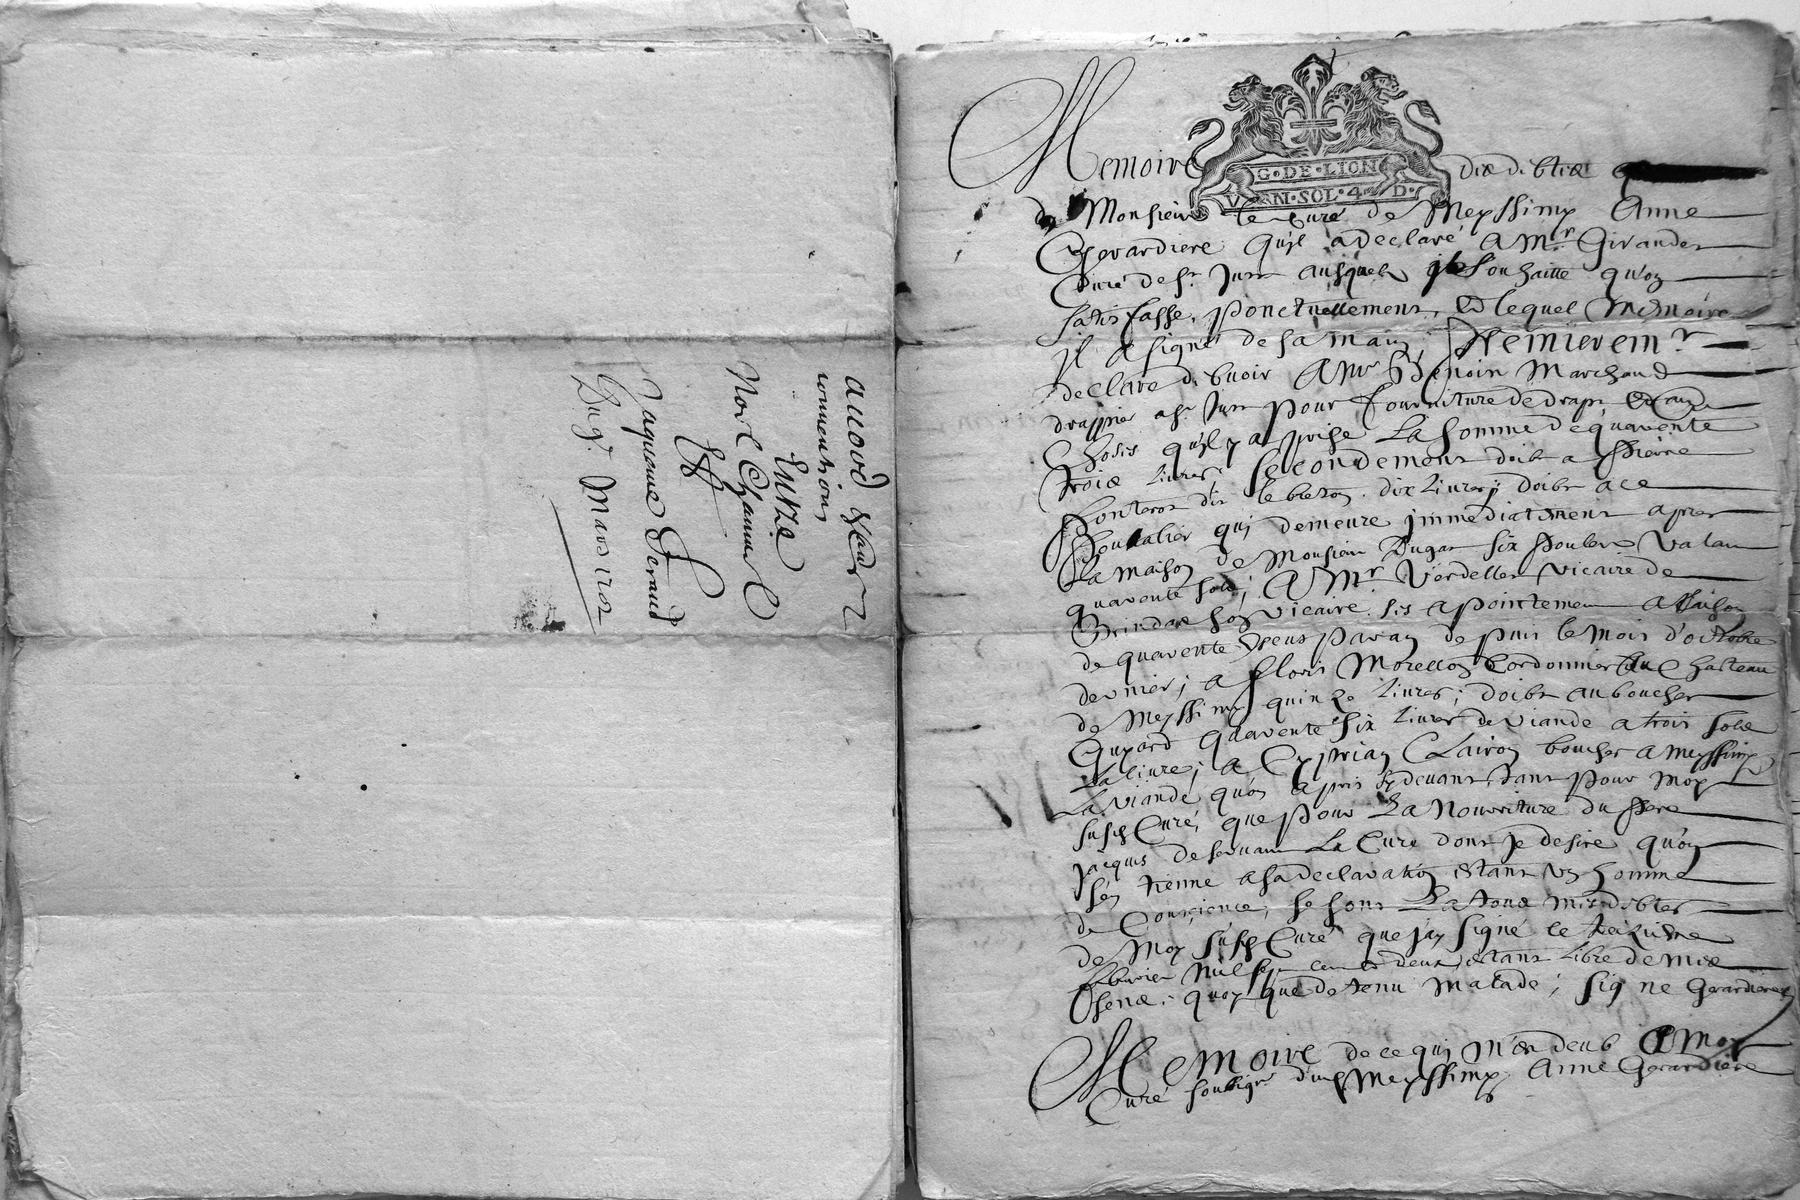 accord & conv
conventions
Entre
Noel Chanuel
Et
Jaqueme Geraud
Du 9e Mars 1702
G·DE·LION
SOL·4·D·
Memoire des debtes
de Monsieur le Curé de Meyssimy Anne
Gerardiere qu'il a declaré A Mr Girander
Curé de St Just ausquels il souhaitte qu'on
satisfasse ponctuellement, Et lequel Memoire
Il a signé de sa main; Premierem.t
declare debvoir A Mr Benoin Marchand
drappier a St Just pour fourniture de draps, Et au.
Choses qu'il y a prise La somme de quarente
trois livres; Secondement doibt a Pierre
dit le breton dix livres; doibt a ce
qui demeure immediatement apres
La maison de Monsieur Dugas six Poulers valant
quarente sols; A Mr Verdellet vicaire de
Brindas son vicaire ses apointemen A Raison
de quarente Escus par an depuis le mois d'octobre
dernier; a Floris Morellon Cordonnier du Chasteau
de Meyssimy quinze livres; doibt au boucher
Guyard quarente six livres de viande a trois sols
La livre; a Cyprian Clairon boucher a Meyssimy
La viande qu'on a pris cy devant, tant pour moy
susd Curé, que pour La Nourriture du Pere
Jacques deservant La Cure dont je desire qu'on
s'en tienne a sa declaration estant un homme
de Conscience, se sont La tous mes debtes
de Moy susd Curé que jay signé le treizieme
febvrier Mil sept cents deux, estant libre de mes
sens; quoy que detenu malade; signé Gerardiere
Memoire de ce qui m'est deub A Moy
Curé soubsigné dud Meyssimy Anne Gerardiere